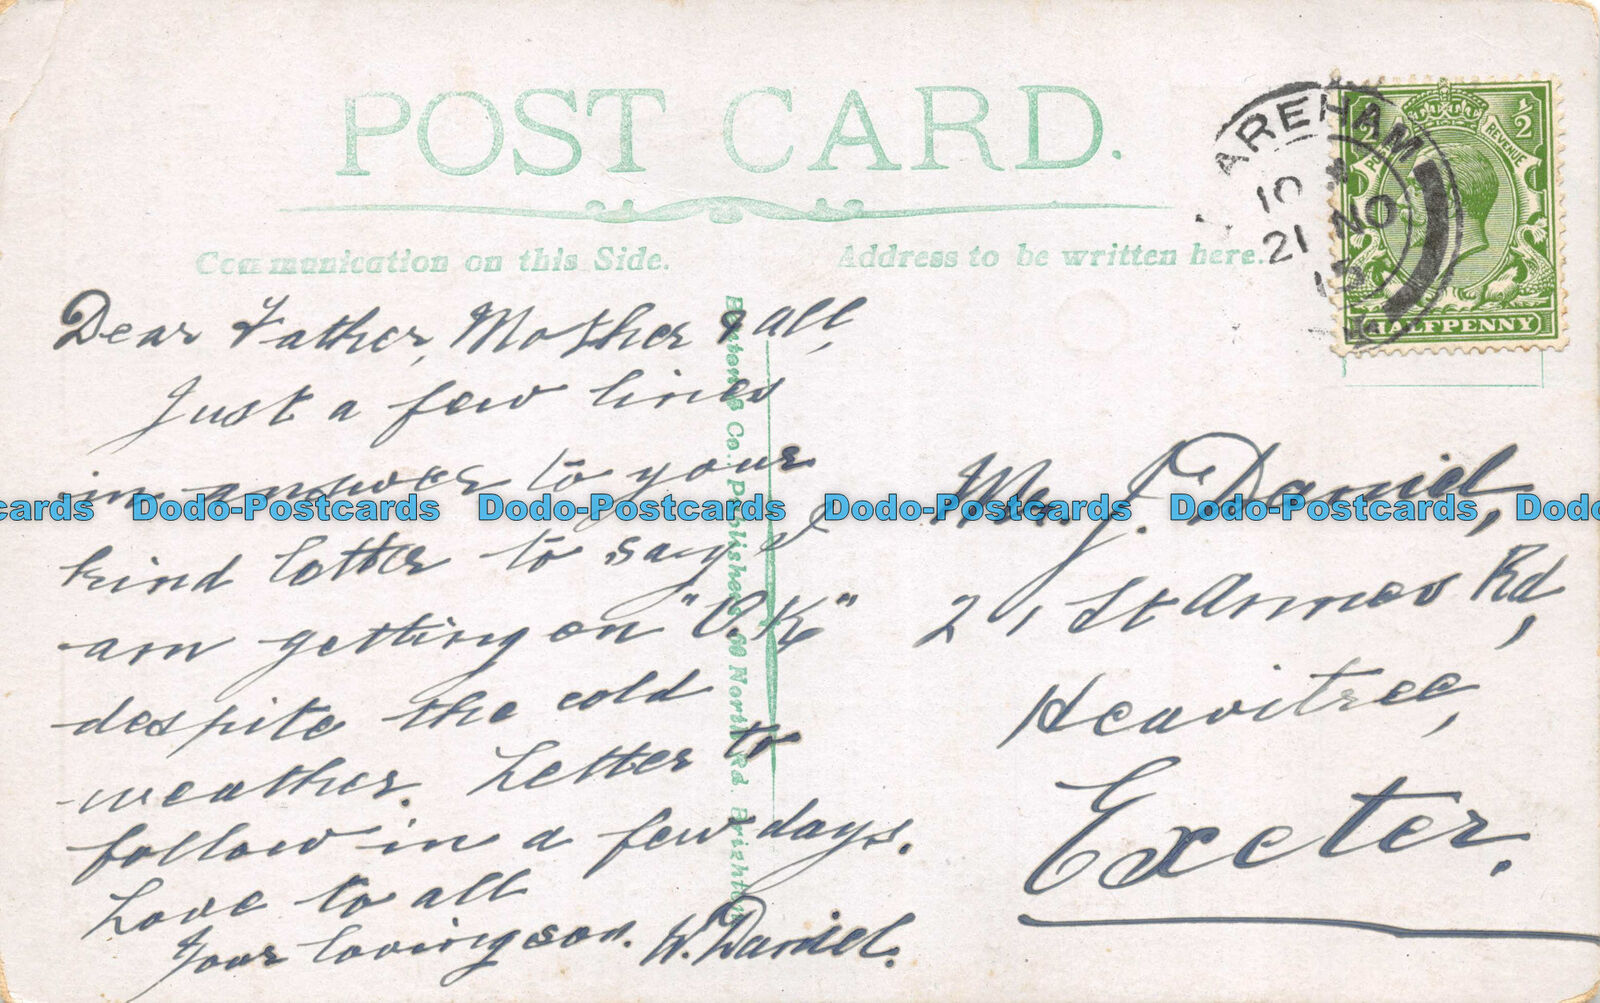 POST CARD.
Communication on this Side.
Address to be written here.
AREHAM
10
21 NO
½
REVENUE
HALFPENNY
Dear Father, Mother & all,
Just a few lines
in answer to your
kind letter to say I
am getting on "O.K"
despite the cold
weather. Letter to
follow in a few days.
Love to all
Your loving son. W. Daniel.
Co. Publishers, 60 North Rd. Brighton
Mr. J. Daniel,
21 St Annes Rd,
Heavitree,
Exeter.
cards Dodo-Postcards Dodo-Postcards Dodo-Postcards Dodo-Postcards Dodo